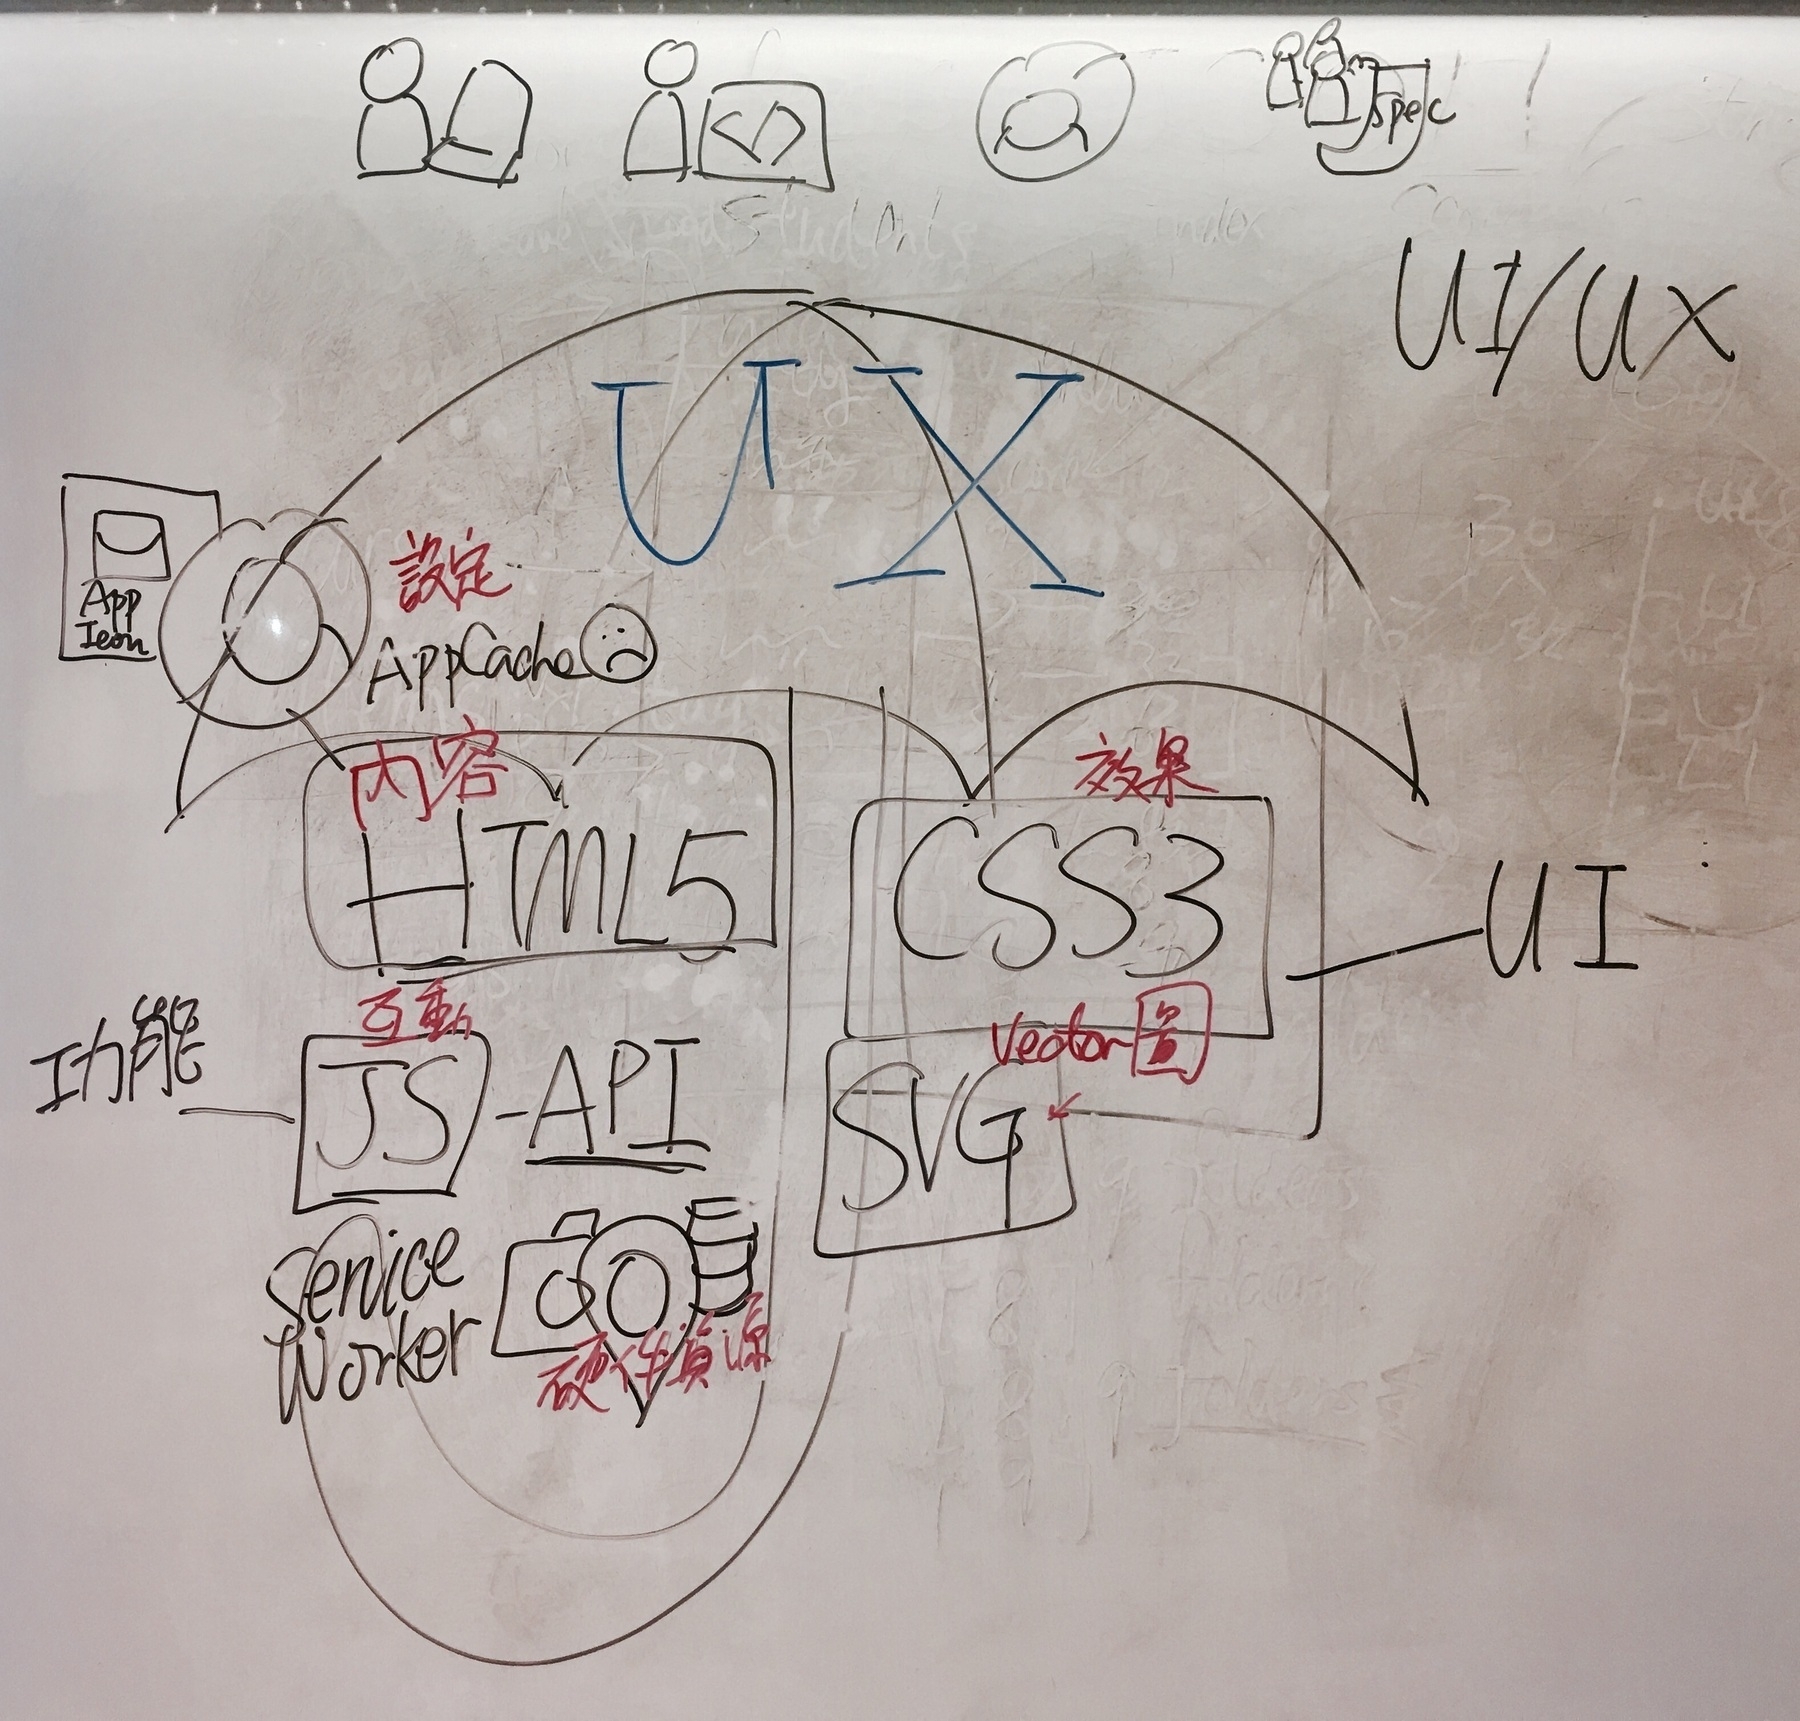 </>
Spec
UI/UX
UX
App
Icon
設定
AppCache
內容
HTML5
效果
CSS3
UI
互動
功能
JS
-API
Vector圖
SVG
Service
Worker
硬件資源